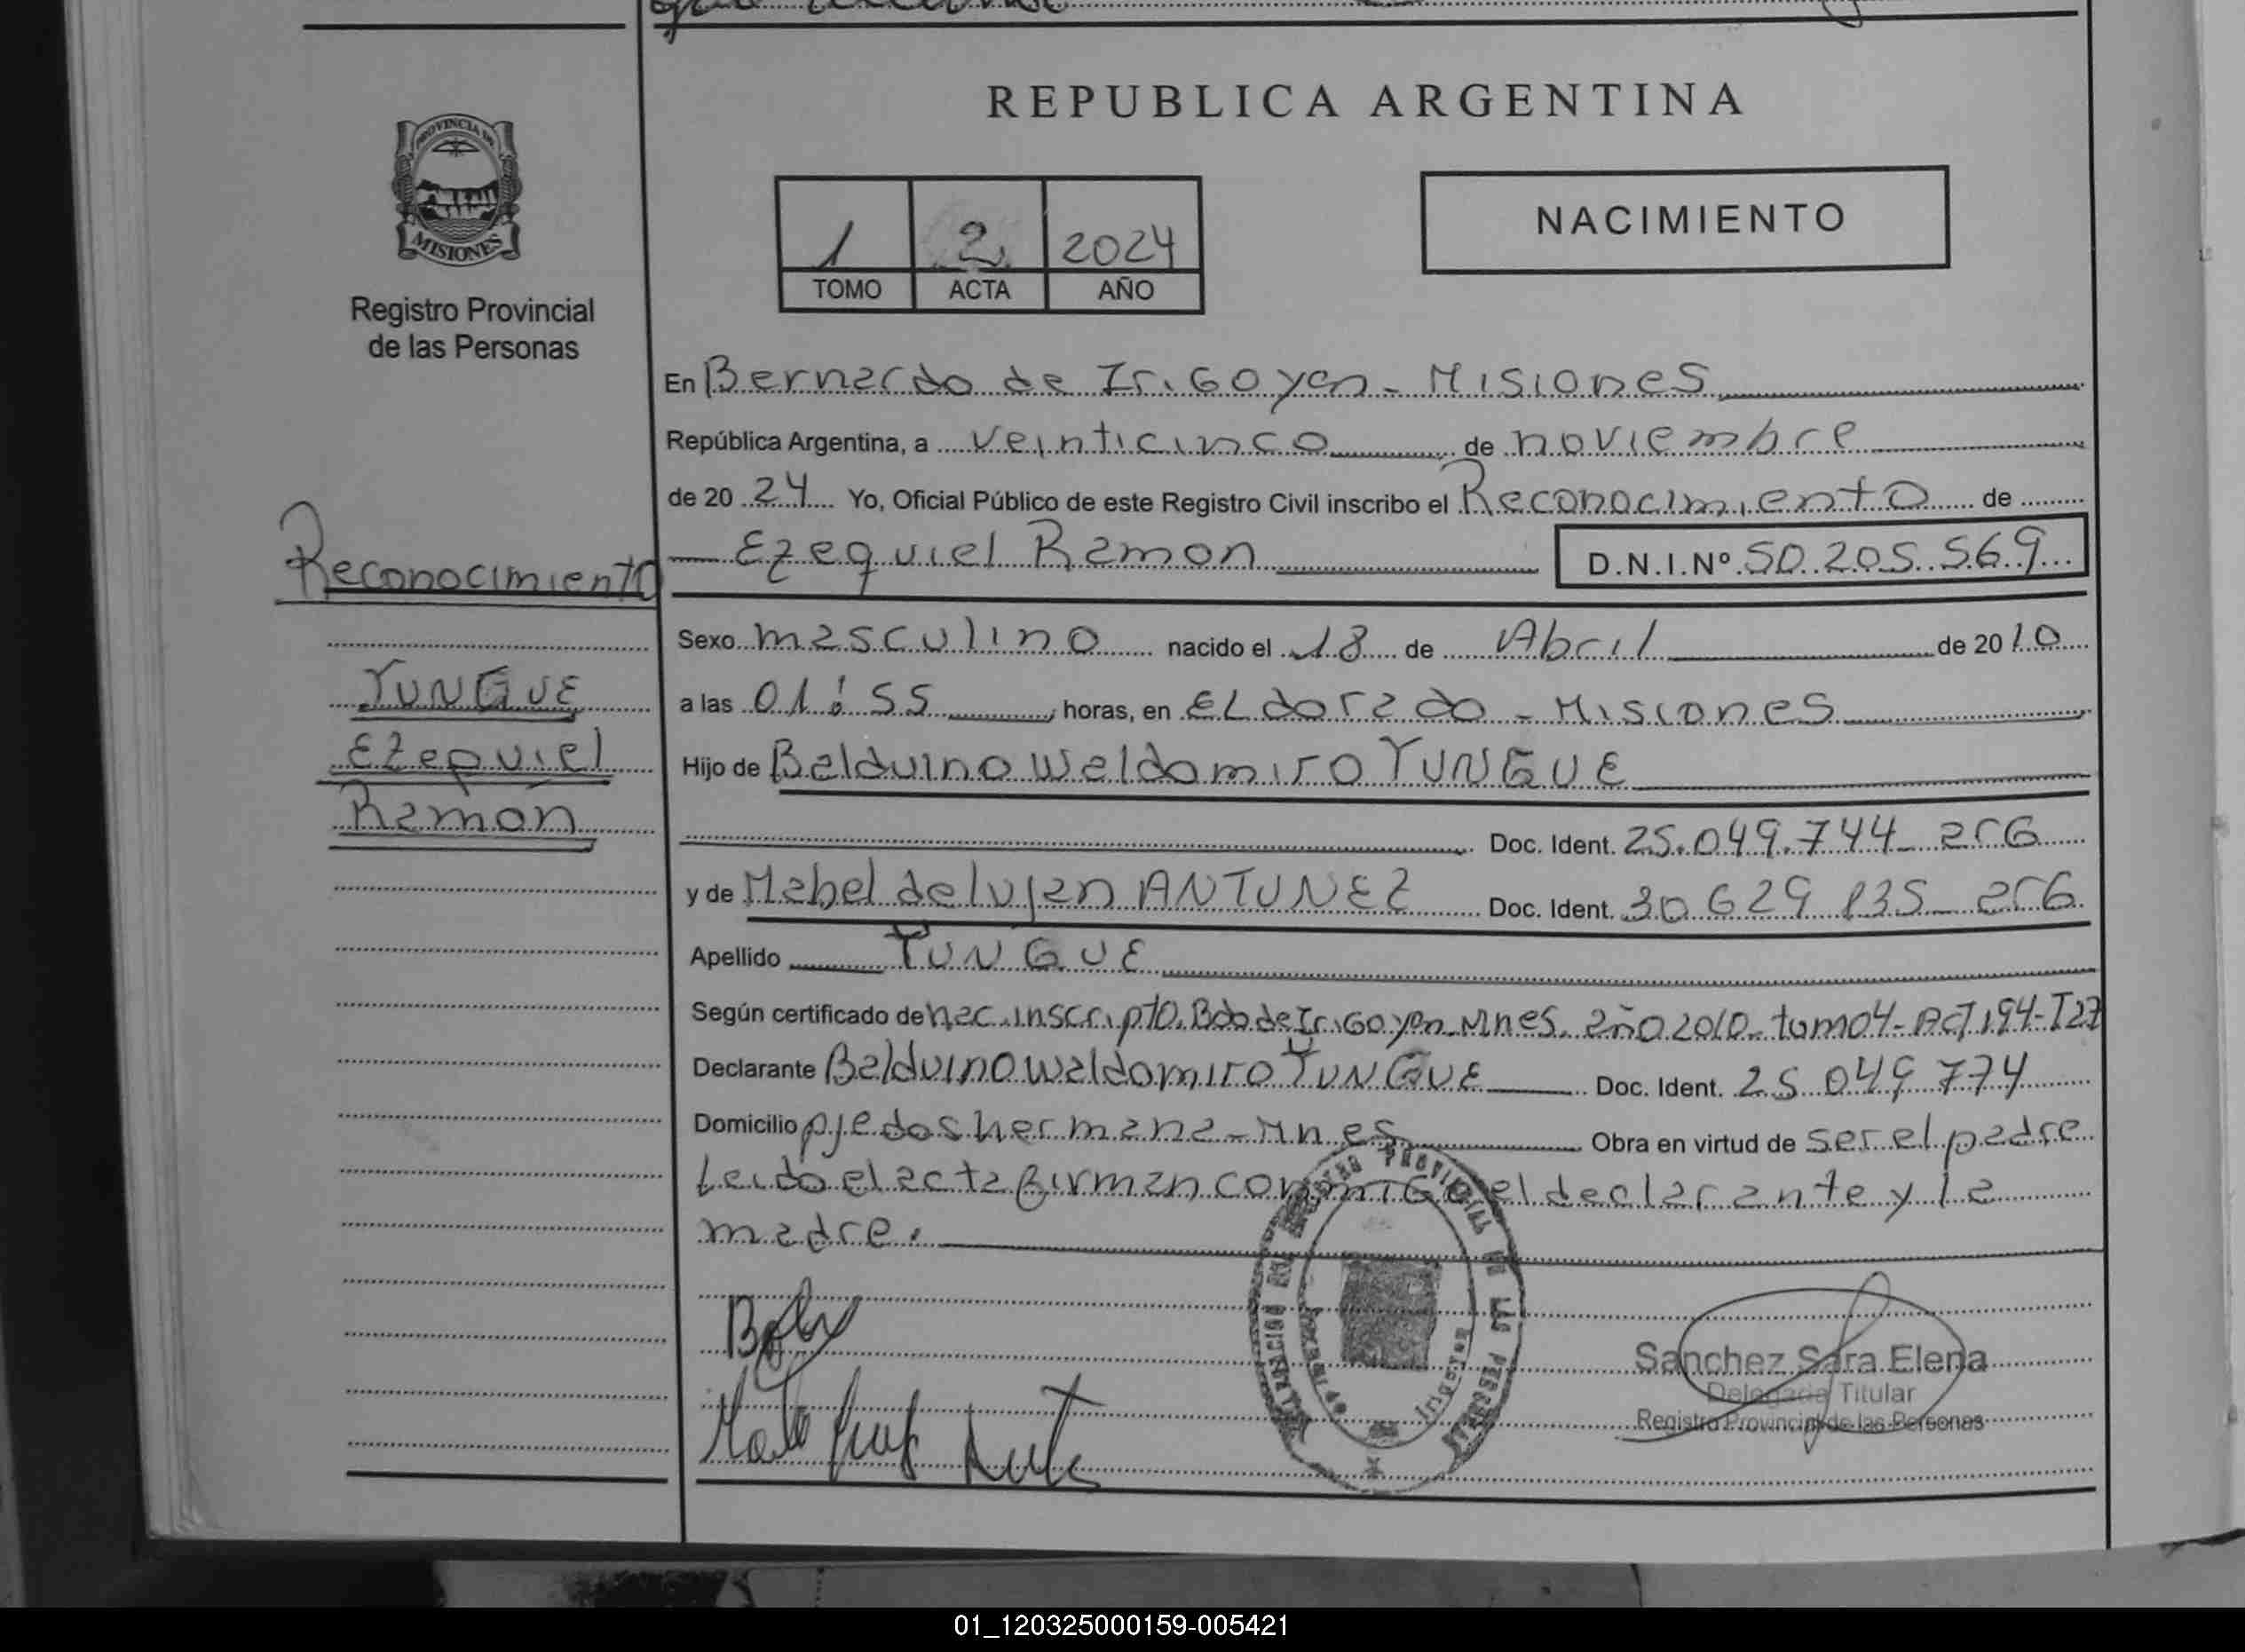 REPUBLICA ARGENTINA
PROVINCIA DE
MISIONES
Registro Provincial
de las Personas
1 2 2024
TOMO ACTA AÑO
NACIMIENTO
En Bernardo de Irigoyen - Misiones
República Argentina, a veinticinco de noviembre
de 2024 Yo, Oficial Público de este Registro Civil inscribo el Reconocimiento de
Ezequiel Ramon D.N.I.Nº 50.205.569
Reconocimiento
YUNGUE
Ezequiel
Ramón
Sexo masculino nacido el 18 de Abril de 2010
a las 01:55 horas, en ELdorado - Misiones
Hijo de Balduino Waldomiro YUNGUE
Doc. Ident. 25.049.744 - arG
y de Mabel del Lujan ANTUNEZ Doc. Ident. 30 629 135 - arG
Apellido YUNGUE
Según certificado de nac. inscripto. Bdo de Irigoyen - Mnes. año 2010 - tomo 4 - Act 194 - T27
Declarante Balduino Waldomiro YUNGUE Doc. Ident. 25 049 774
Domicilio pje dos hermana - Mnes Obra en virtud de ser el padre
Leido el acta firman conmigo el declarante y la
madre.
REGISTRO PROVINCIAL DE LAS PERSONAS
Bernardo de Irigoyen
Sanchez Sara Elena
Delegada Titular
Registro Provincial de las Personas
01_120325000159-005421